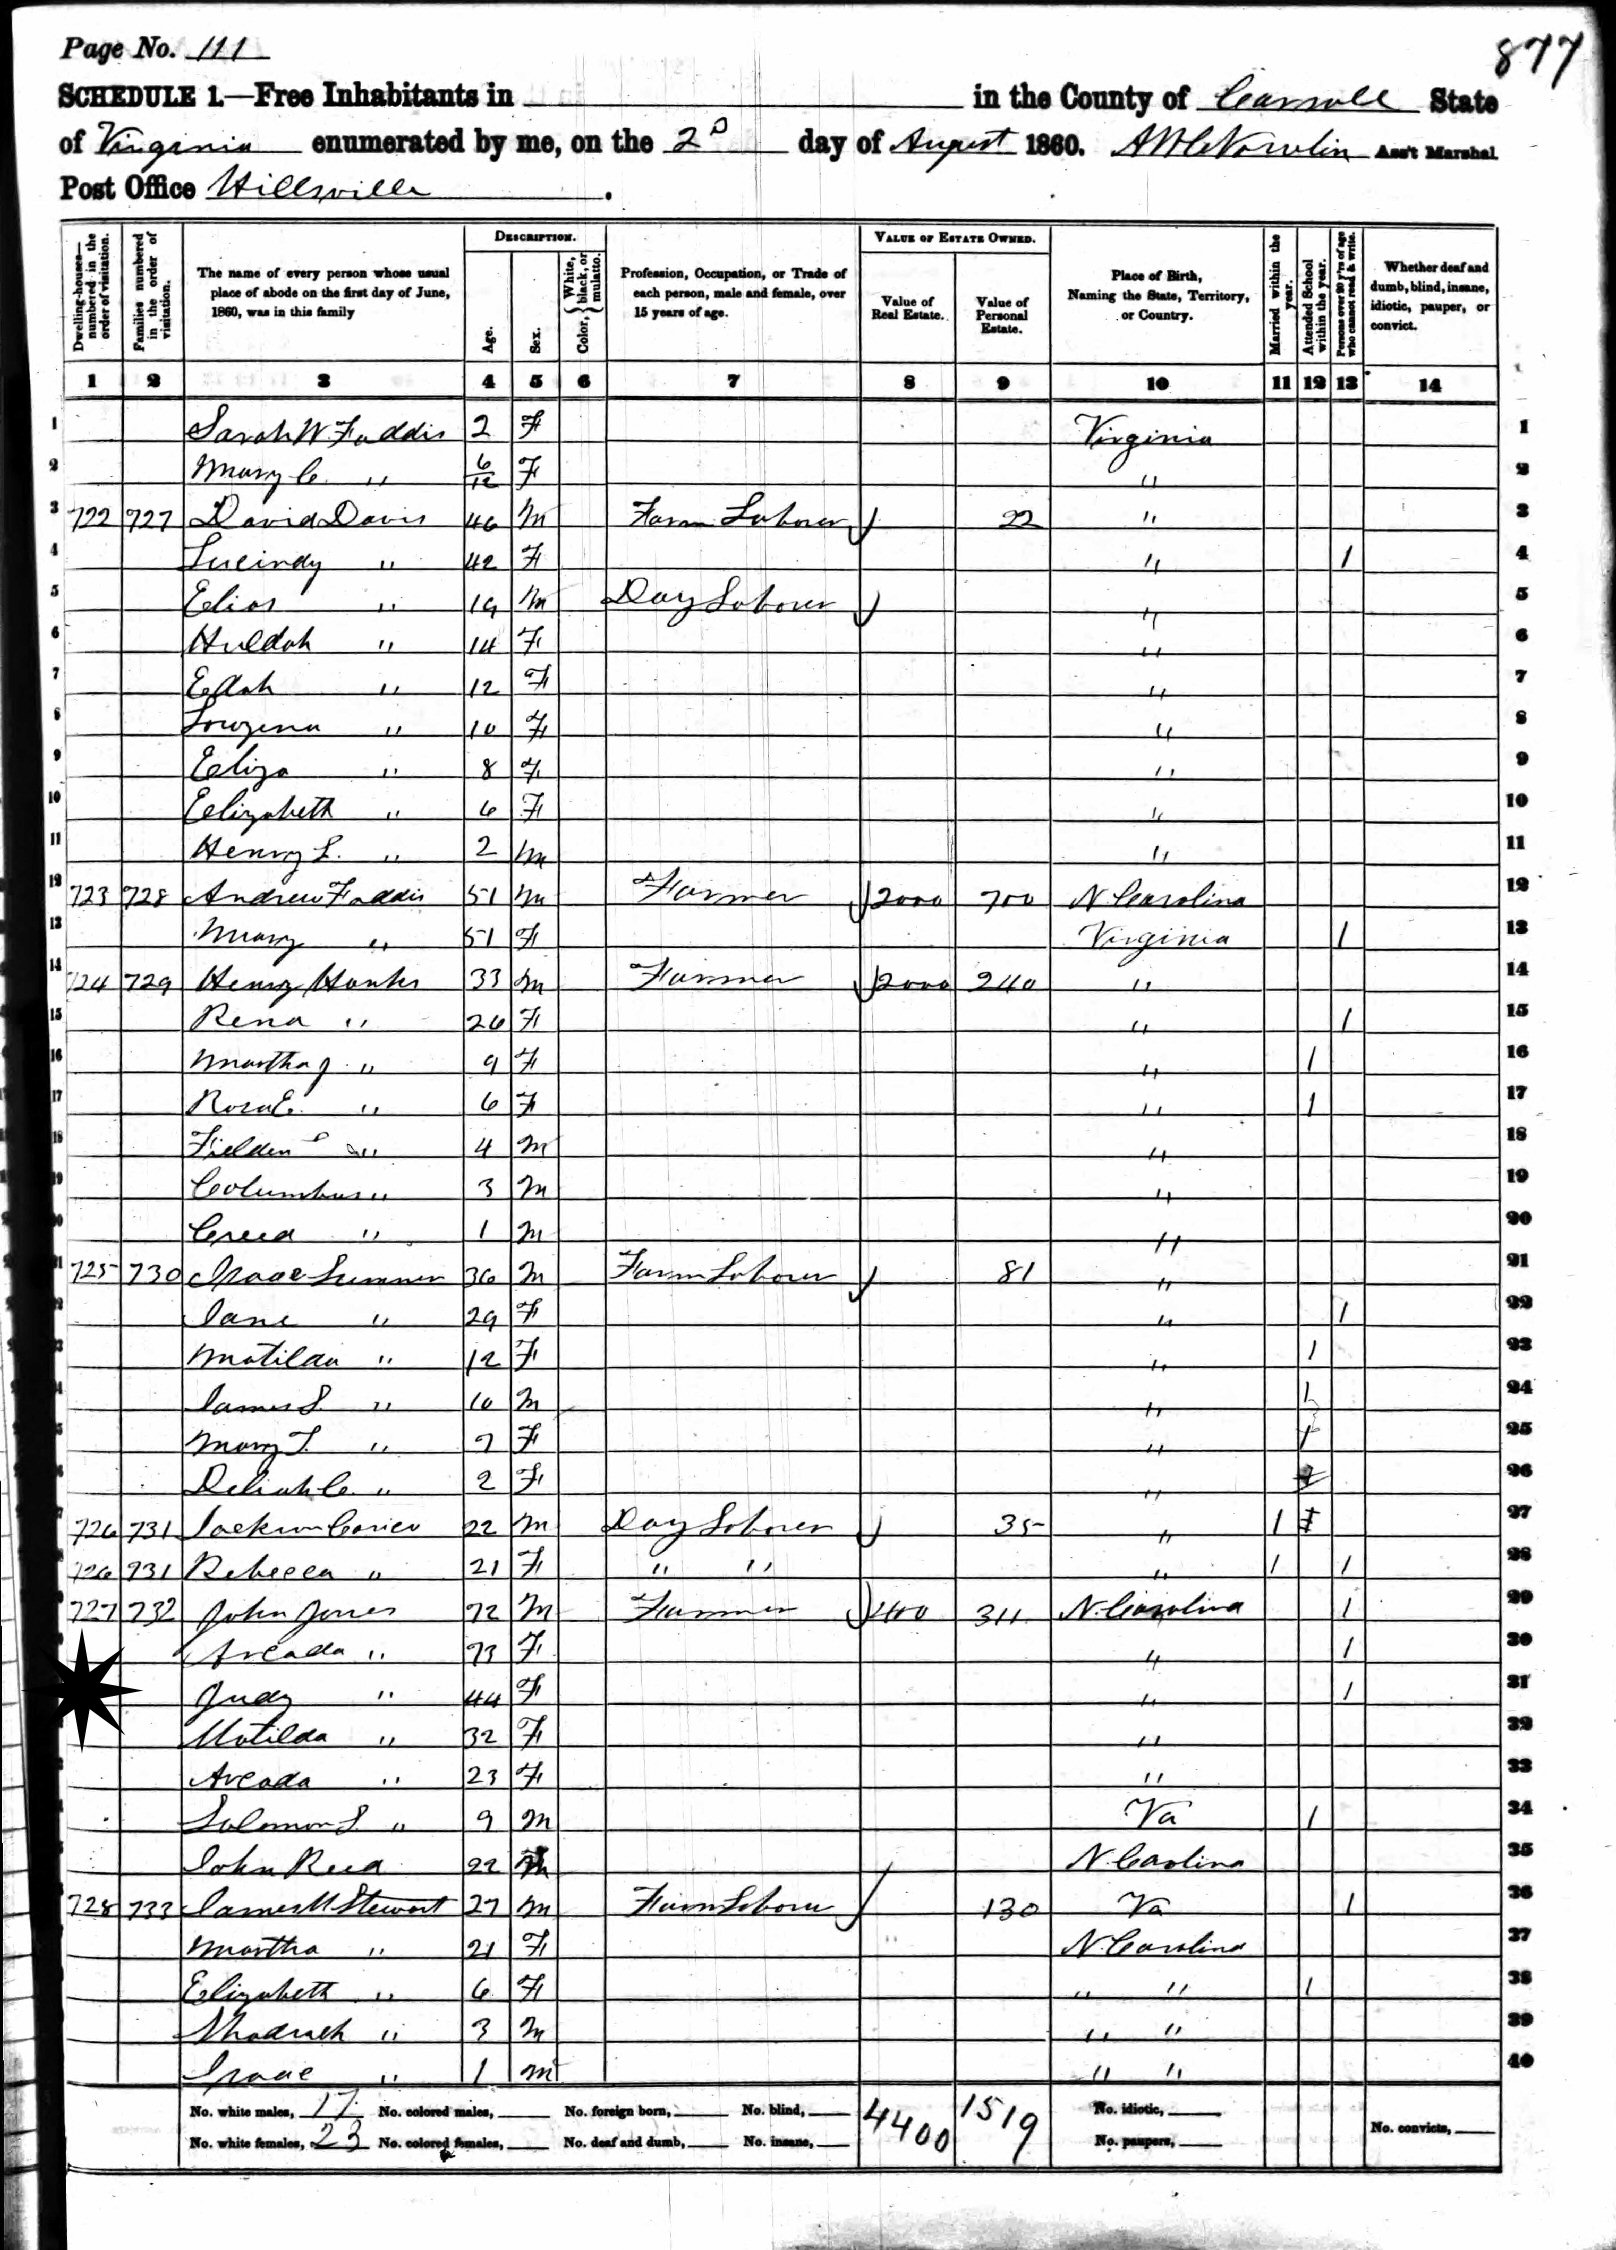 Page No. 111
877
SCHEDULE 1.—Free Inhabitants in in the County of Carroll State
of Virginia enumerated by me, on the 2D day of August 1860. A M C Nowlin Ass't Marshal
Post Office Hillsville.
Dwelling-houses—numbered in the order of visitation. Families numbered in the order of visitation. The name of every person whose usual place of abode on the first day of June, 1860, was in this family DESCRIPTION. Age. Sex. Color, { White, black, or mulatto. Profession, Occupation, or Trade of each person, male and female, over 15 years of age. VALUE OF ESTATE OWNED. Value of Real Estate. Value of Personal Estate. Place of Birth, Naming the State, Territory, or Country. Married within the year. Attended School within the year. Persons over 20 y'rs of age who cannot read & write. Whether deaf and dumb, blind, insane, idiotic, pauper, or convict.
1 2 3 4 5 6 7 8 9 10 11 12 13 14
1 Sarah W. Faddis 2 F Virginia 1
2 Mary C. " 6/12 F " 2
3 722 727 David Davis 46 M Farm Laborer 22 " 3
4 Lucindy " 42 F " 1 4
5 Elias " 19 M Day Laborer " 5
6 Huldah " 14 F " 6
7 Edah " 12 F " 7
8 Lowzena " 10 F " 8
9 Eliza " 8 F " 9
10 Elizabeth " 6 F " 10
11 Henry L. " 2 M " 11
12 723 728 Andrew Faddis 51 M Farmer 2000 700 N Carolina 12
13 Mary " 51 F Virginia 1 13
14 724 729 Henry Hanks 33 M Farmer 2000 240 " 14
15 Rena " 26 F " 1 15
16 Martha J. " 9 F " 1 16
17 Rosa E. " 6 F " 1 17
18 Fielden " 4 M " 18
19 Columbus " 3 M " 19
Creed " 1 M " 20
725 730 Isaac Sumner 36 M Farm Laborer 81 " 21
Jane " 29 F " 1 22
Matilda " 12 F " 1 23
James S. " 10 M " 1 24
Mary T. " 7 F " 1 25
Deliah C. " 2 F " 26
726 731 Jackson 22 M Day Laborer 35 " 1 27
726 731 Rebecca " 21 F " " " 1 1 28
727 732 John Jones 72 M Farmer 400 311 N. Carolina 1 29
Arcada " 73 F " 1 30
Judy " 44 F " 1 31
Matilda " 32 F " 32
Arcada " 23 F " 33
Solomon S. " 9 M Va 1 34
John Reed 22 M N. Carolina 35
728 733 James M Stewart 27 M Farm Laborer 130 Va 1 36
Martha " 21 F N. Carolina 37
Elizabeth " 6 F " " 1 38
Shadrach " 3 M " " 39
Isaac " 1 M " " 40
No. white males, 17 No. colored males, No. foreign born, No. blind, 4400 1519 No. idiotic,
No. white females, 23 No. colored females, No. deaf and dumb, No. insane, No. paupers, No. convicts,